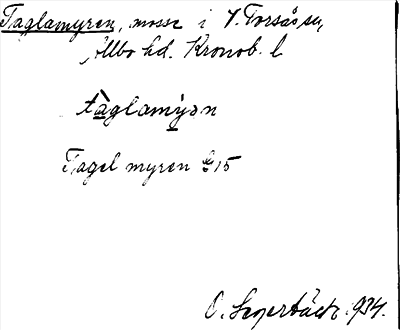 Taglamyren, mosse i V. Torsås sn,
Allbo hd. Kronob. l
tàglamỳrn
Tagel myren 15
O. 1934.